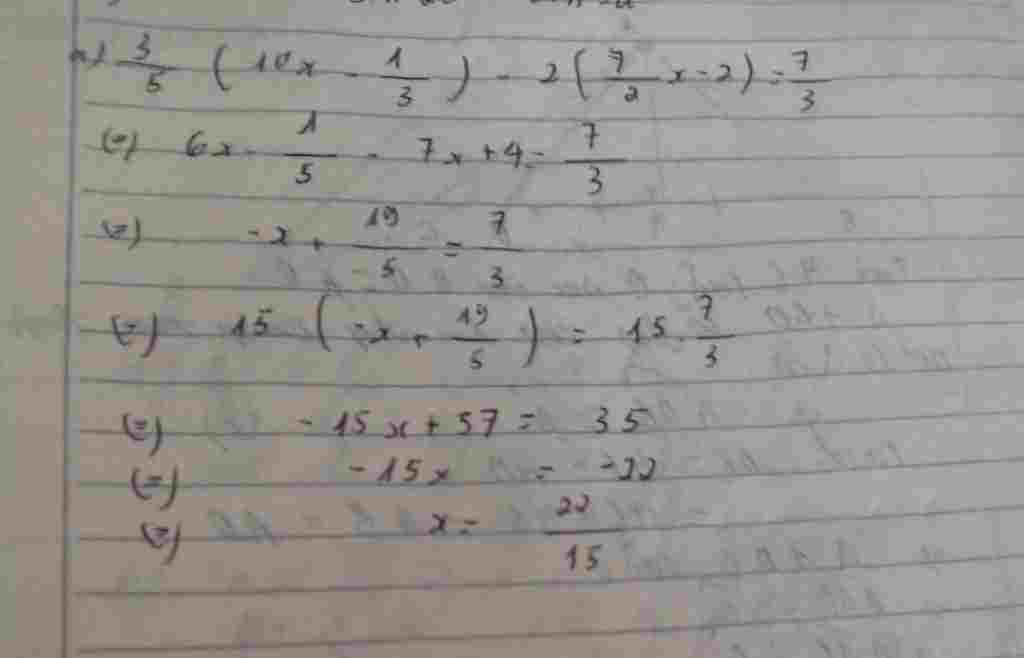 a) 3/5 (10x - 1/3) - 2(7/2 x - 2) = 7/3
(=) 6x - 1/5 - 7x + 4 = 7/3
(=) -x + 19/5 = 7/3
(=) 15 (-x + 19/5) = 15 . 7/3
(=) -15x + 57 = 35
(=) -15x = -22
(=) x = 22/15